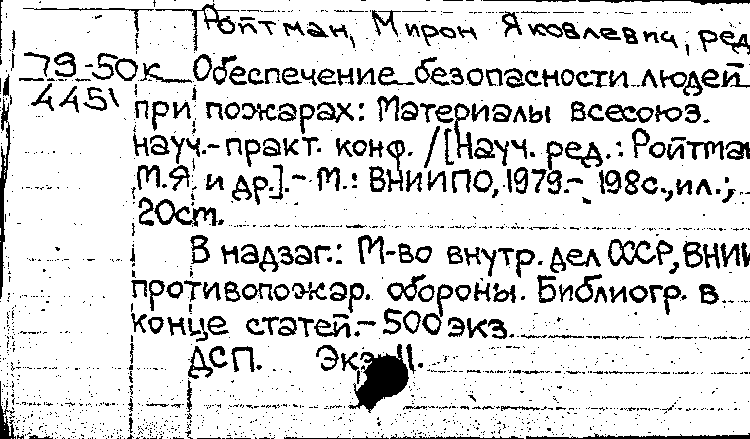 Ройтман, Мирон Яковлевич, ред
79-50к Обеспечение безопасности людей
4451 при пожарах: Материалы всесоюз.
науч.-практ. конф. /[Науч. ред.: Ройтман
М.Я. и др.].- М.: ВНИИПО, 1979.- 198с.,ил.;
20cm.
В надзаг.: М-во внутр. дел СССР, ВНИИ
противопожар. обороны. Библиогр. в
конце статей.- 500 экз.
ДСП. Экз. 11.